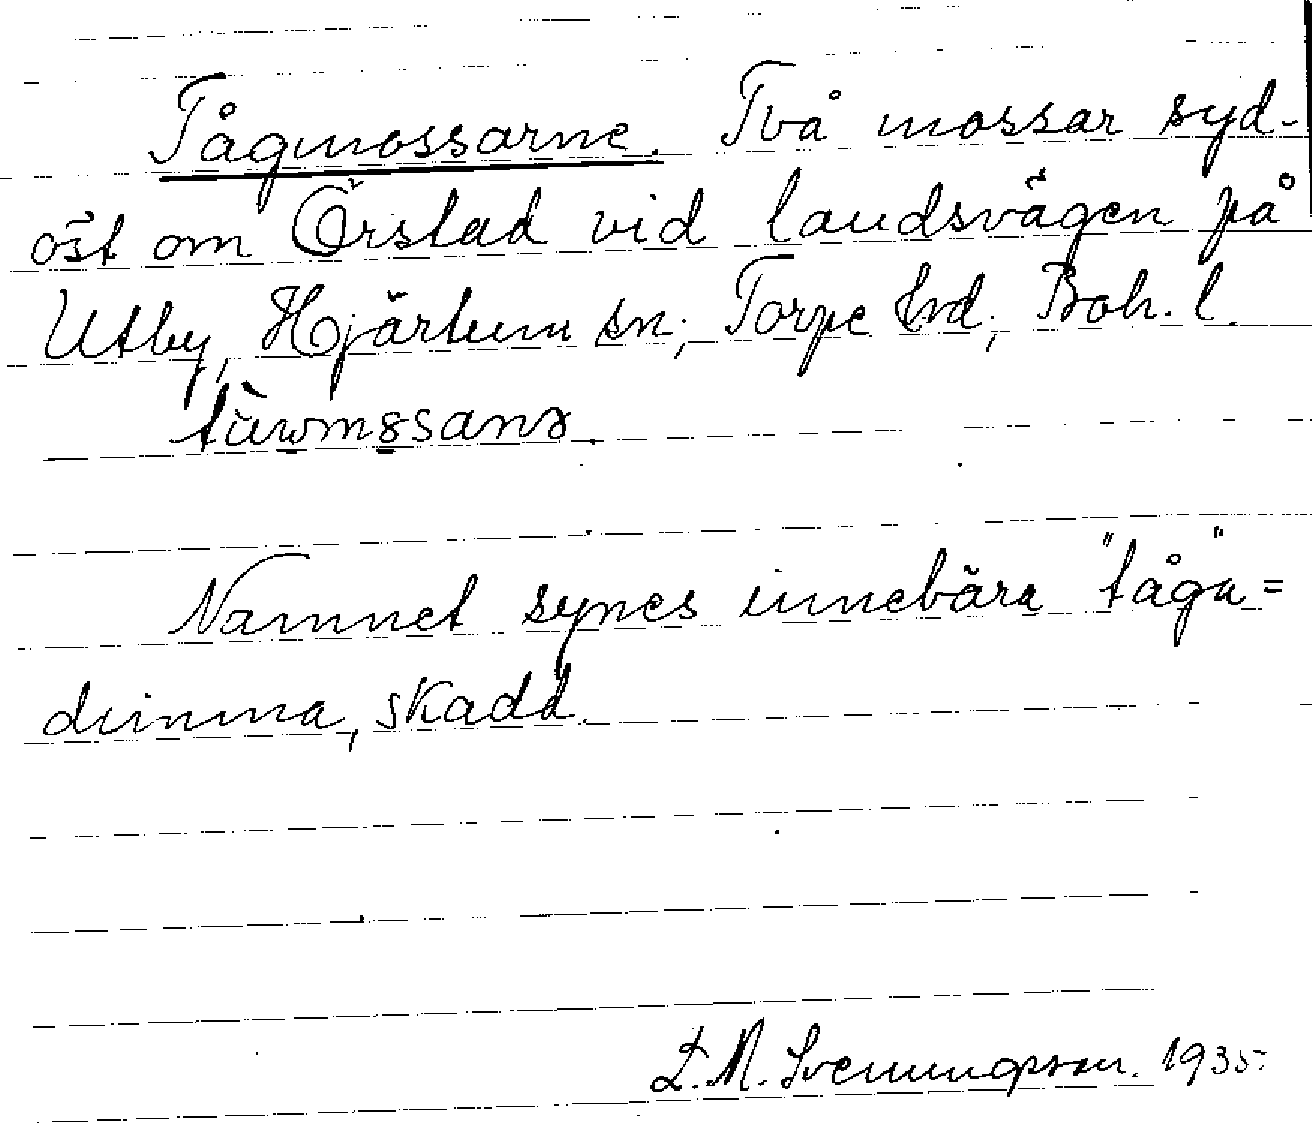 Tågmossarne. Två mossar syd-
öst om Örstad vid landsvägen på
Utby, Hjärtum sn; Torpe hrd; Boh. l.
Namnet synes innebära "tåga"=
dimma, skadd.
L. M. Svenungsson. 1935.